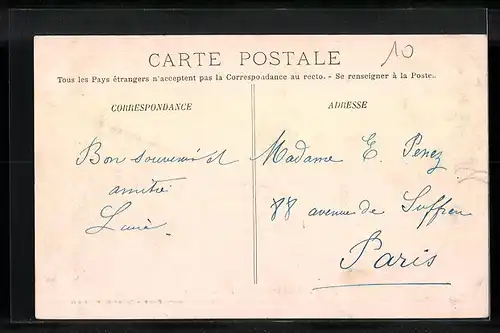 CARTE POSTALE
10
Tous les Pays étrangers n'acceptent pas la Correspondance au recto. - Se renseigner à la Poste.
CORRESPONDANCE
Bon souvenir et
amitié
ADRESSE
Madame E. Perez
88 avenue de Suffren
Paris